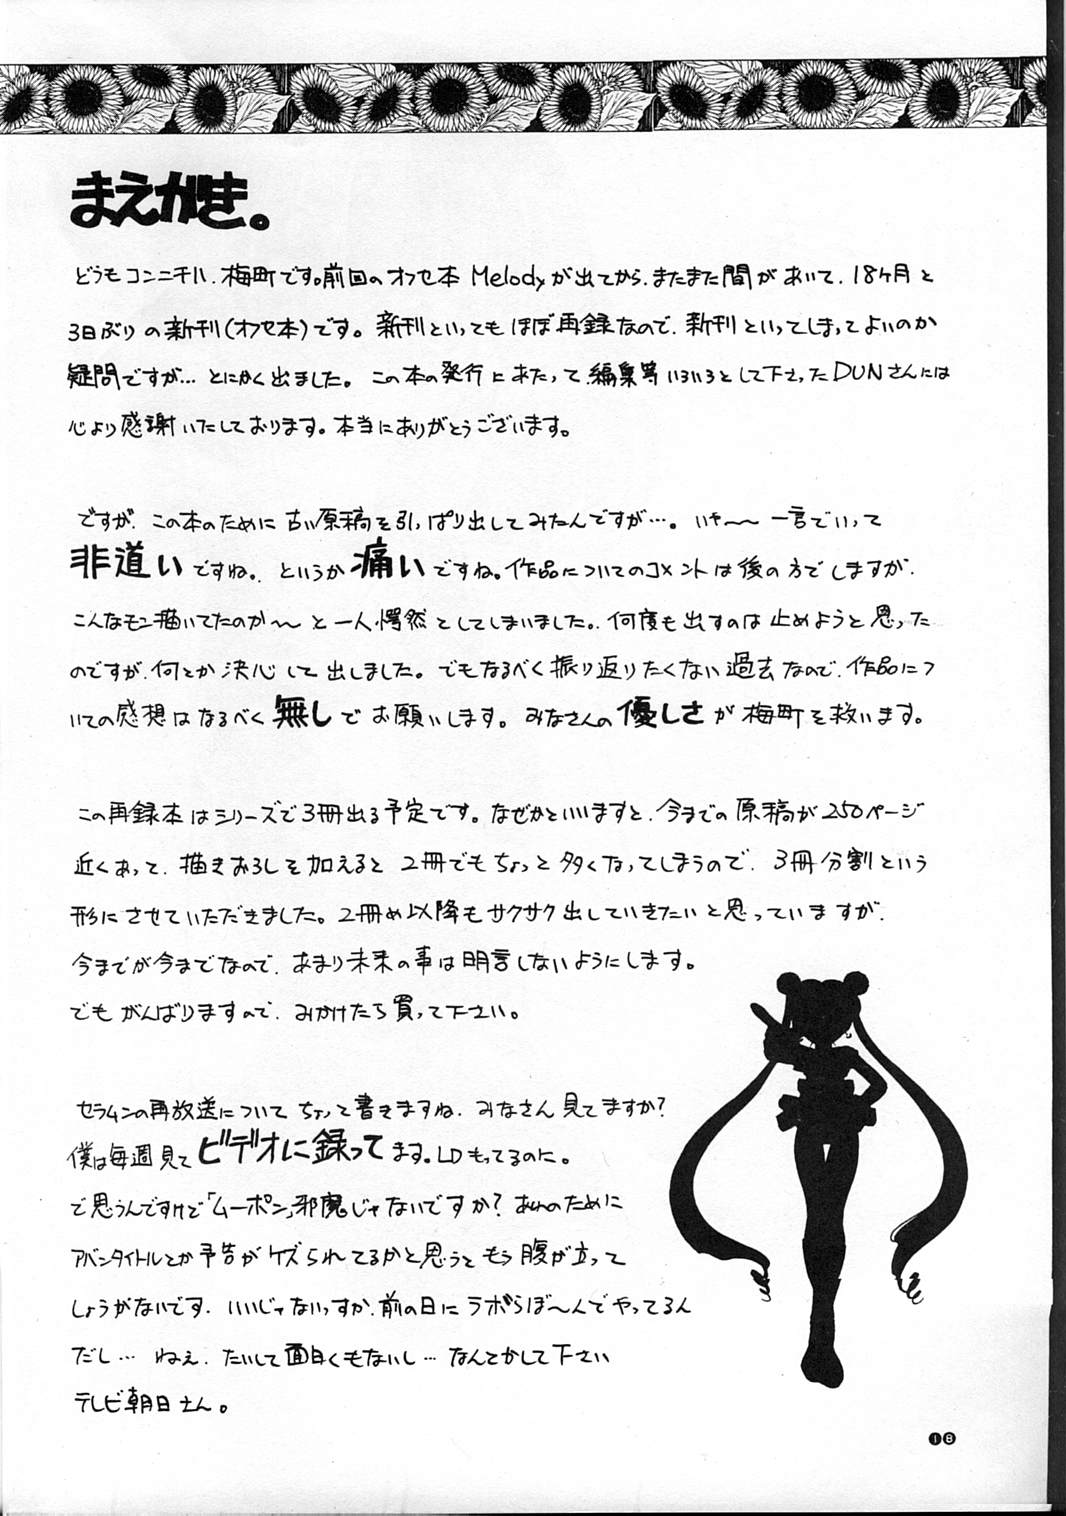 まえがき。
どうもコンニチハ、梅町です。前回のオフセ本 Melodyが出てから、またまた間があいて、18ヶ月と
3日ぶりの新刊(オフセ本)です。新刊といってもほぼ再録なので、新刊といってしまってよいのか
疑問ですが…とにかく出ました。この本の発行にあたって、編集等いろいろとして下さったDUNさんには
心より感謝いたしております。本当にありがとうございます。
ですが、この本のために古い原稿を引っぱり出してみたんですが…。いや〜〜一言でいって
非道いですね。というか痛いですね。作品についてのコメントは後の方でしますが、
こんなモン描いてたのか〜〜と一人愕然としてしまいました。何度も出すのは止めようと思った
のですが、何とか決心して出しました。でもなるべく振り返りたくない過去なので、作品につ
いての感想はなるべく無しでお願いします。みなさんの優しさが梅町を救います。
この再録本はシリーズで3冊出る予定です。なぜかといいますと、今までの原稿が250ページ
近くあって、描きおろしを加えると2冊でもちょっと多くなってしまうので、3冊分割という
形にさせていただきました。2冊め以降もサクサク出していきたいと思っていますが、
今までが今までなので、あまり未来の事は明言しないようにします。
でもがんばりますので、みかけたら買って下さい。
セラムンの再放送についてちょって書きますね。みなさん見てますか?
僕は毎週見てビデオに録ってます。LDもってるのに。
で思うんですけど「ムーポン」邪魔じゃないですか?あれのために
アバンタイトルとか予告がケズられてるかと思うともう腹が立って
しょうがないです。いいじゃないっすか、前の日にラボらぼ〜んでやってるん
だし…ねぇ。たいして面白くもないし…なんとかして下さい
テレビ朝日さん。